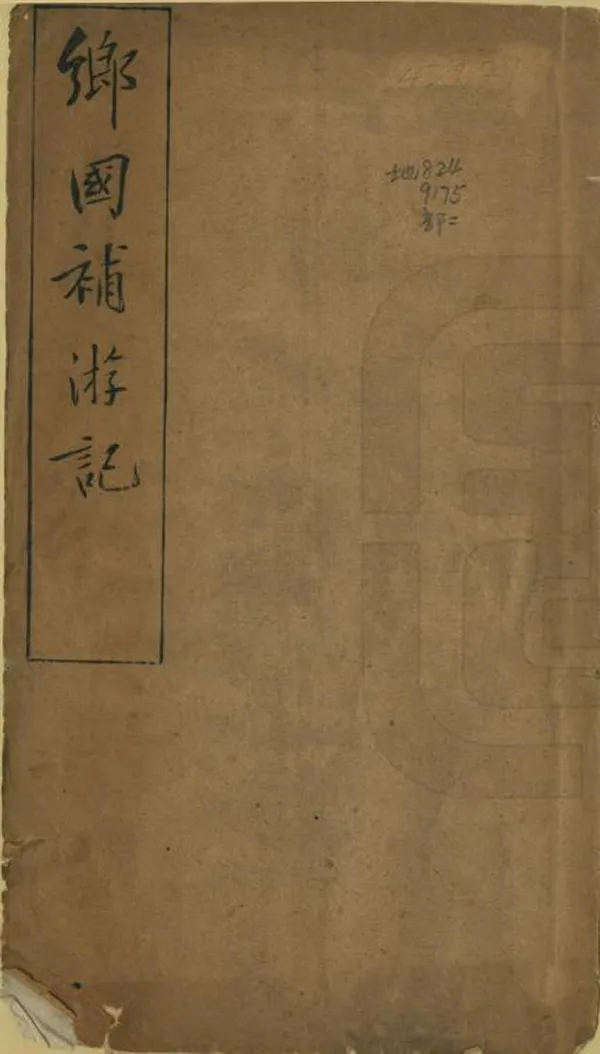 鄉國補游記
地824
9175
部二